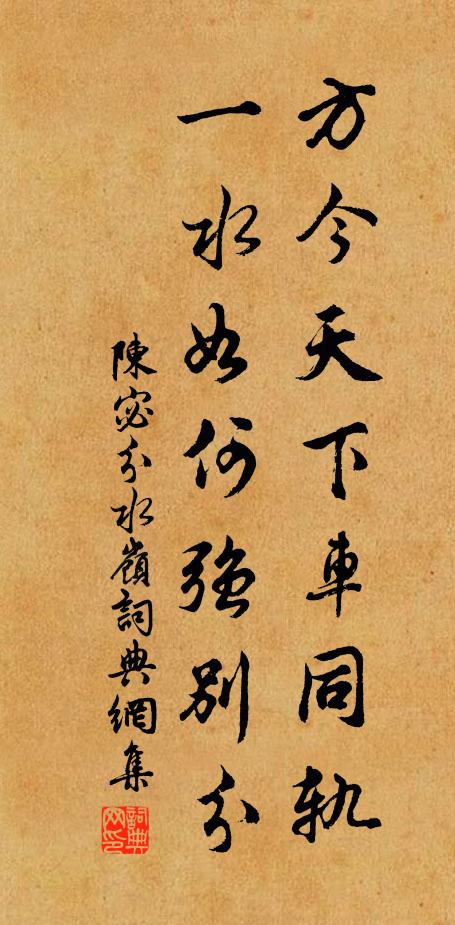 方今天下車同軌
一水如何強別分
陳宓分水嶺詞典網集
詞典網印